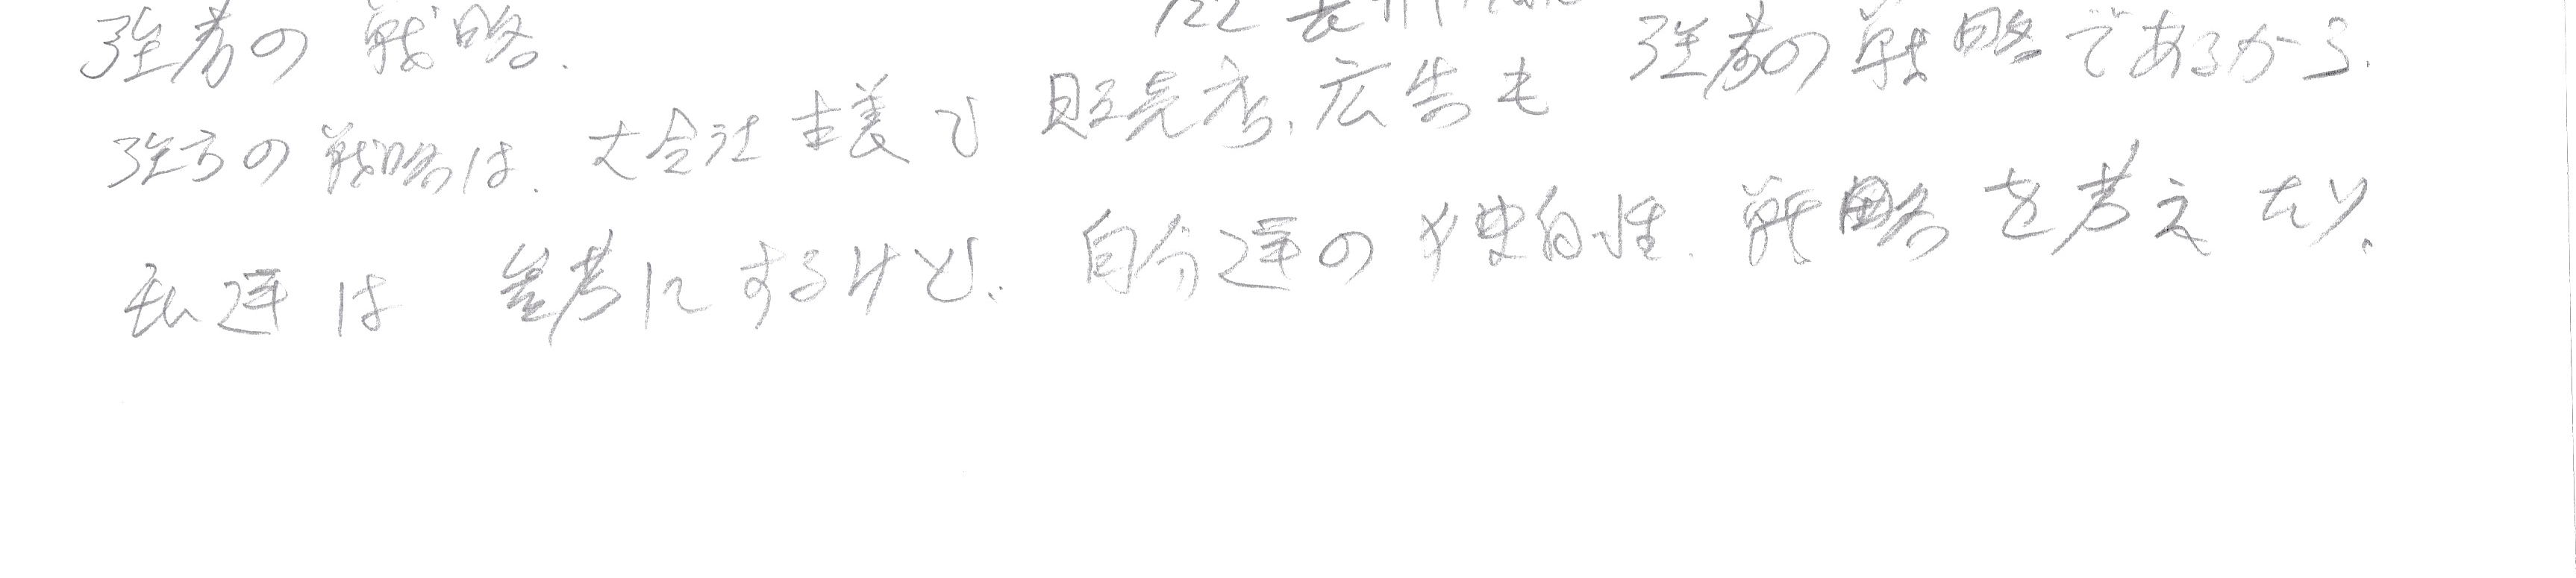 強者の戦略.
強方の戦略は、大会社主義で販売店、広告も強者の戦略であるから、
私達は参考にするけど、自分達の独自性、戦略を考えたい。